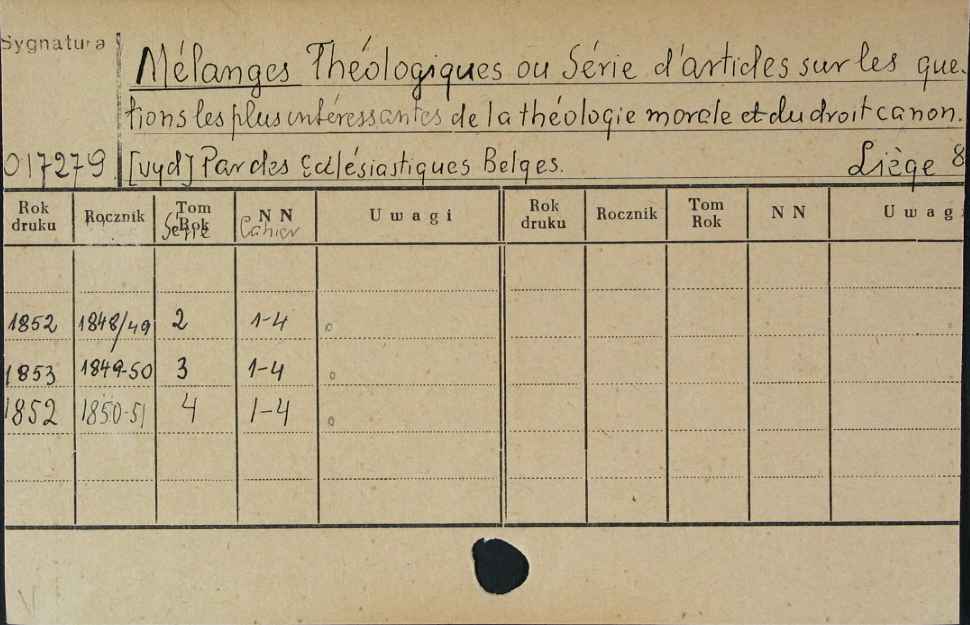 Sygnatura
Mélanges Théologiques ou Série d'articles sur les que-
tions les plus intéressantes de la théologie morale et du droit canon.
017279 [vyd] Par des Ecclésiastiques Belges. Liège 8
Rok druku Rocznik Tom Rok Série N N Cahier Uwagi Rok druku Rocznik Tom Rok N N Uwagi
1852 1848/49 2 1-4 o
1853 1849-50 3 1-4 o
1852 1850-51 4 1-4 o